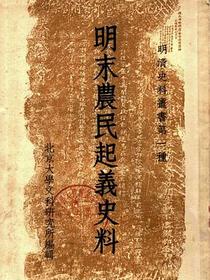 明清史料叢書第一種
明末農民起義史料
北京大學文科研究所編輯